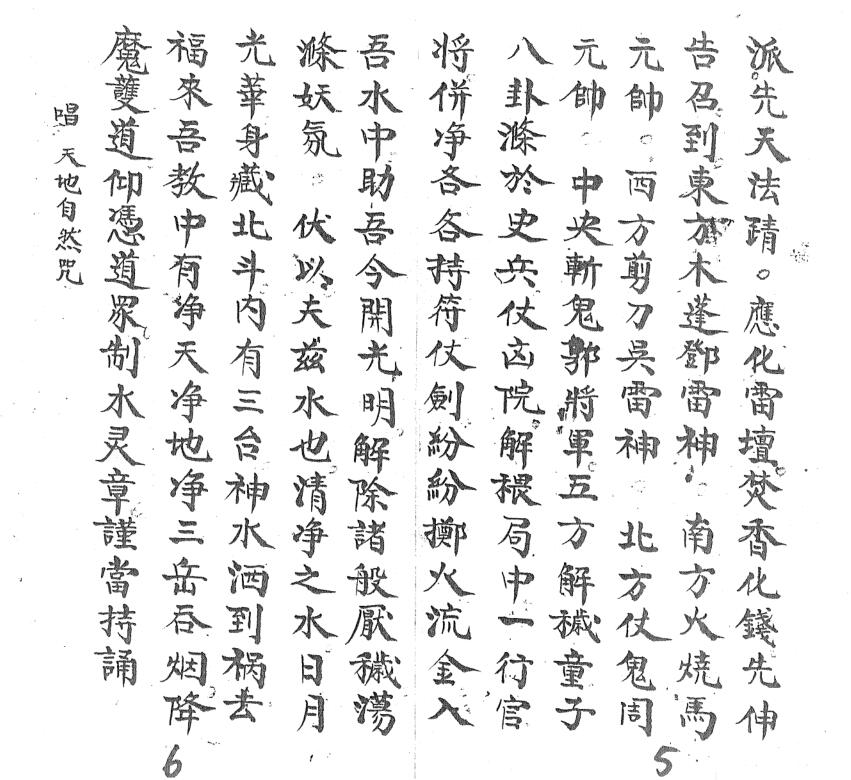 派先天法䝼。應化雷壇焚香化錢先伸
告召到東方木蓬鄧雷神。南方火燒馬
元帥。西方剪刀吳雷神。北方仗鬼周
元帥。中央斬鬼郭將軍五方解穢童子
八卦滌於史兵仗凶院解禩局中一行官
将併净各各持符仗劍紛紛擲火流金入
吾水中助吾今開光明解除諸般厭穢蕩
滌妖氛 伏以夫茲水也清净之水日月
光華身藏北斗内有三台神水洒到祸去
福來吾教中有净天净地净三岳吞烟降
魔護道仰憑道眾制水灵章謹當持誦
唱 天地自然咒
5
6